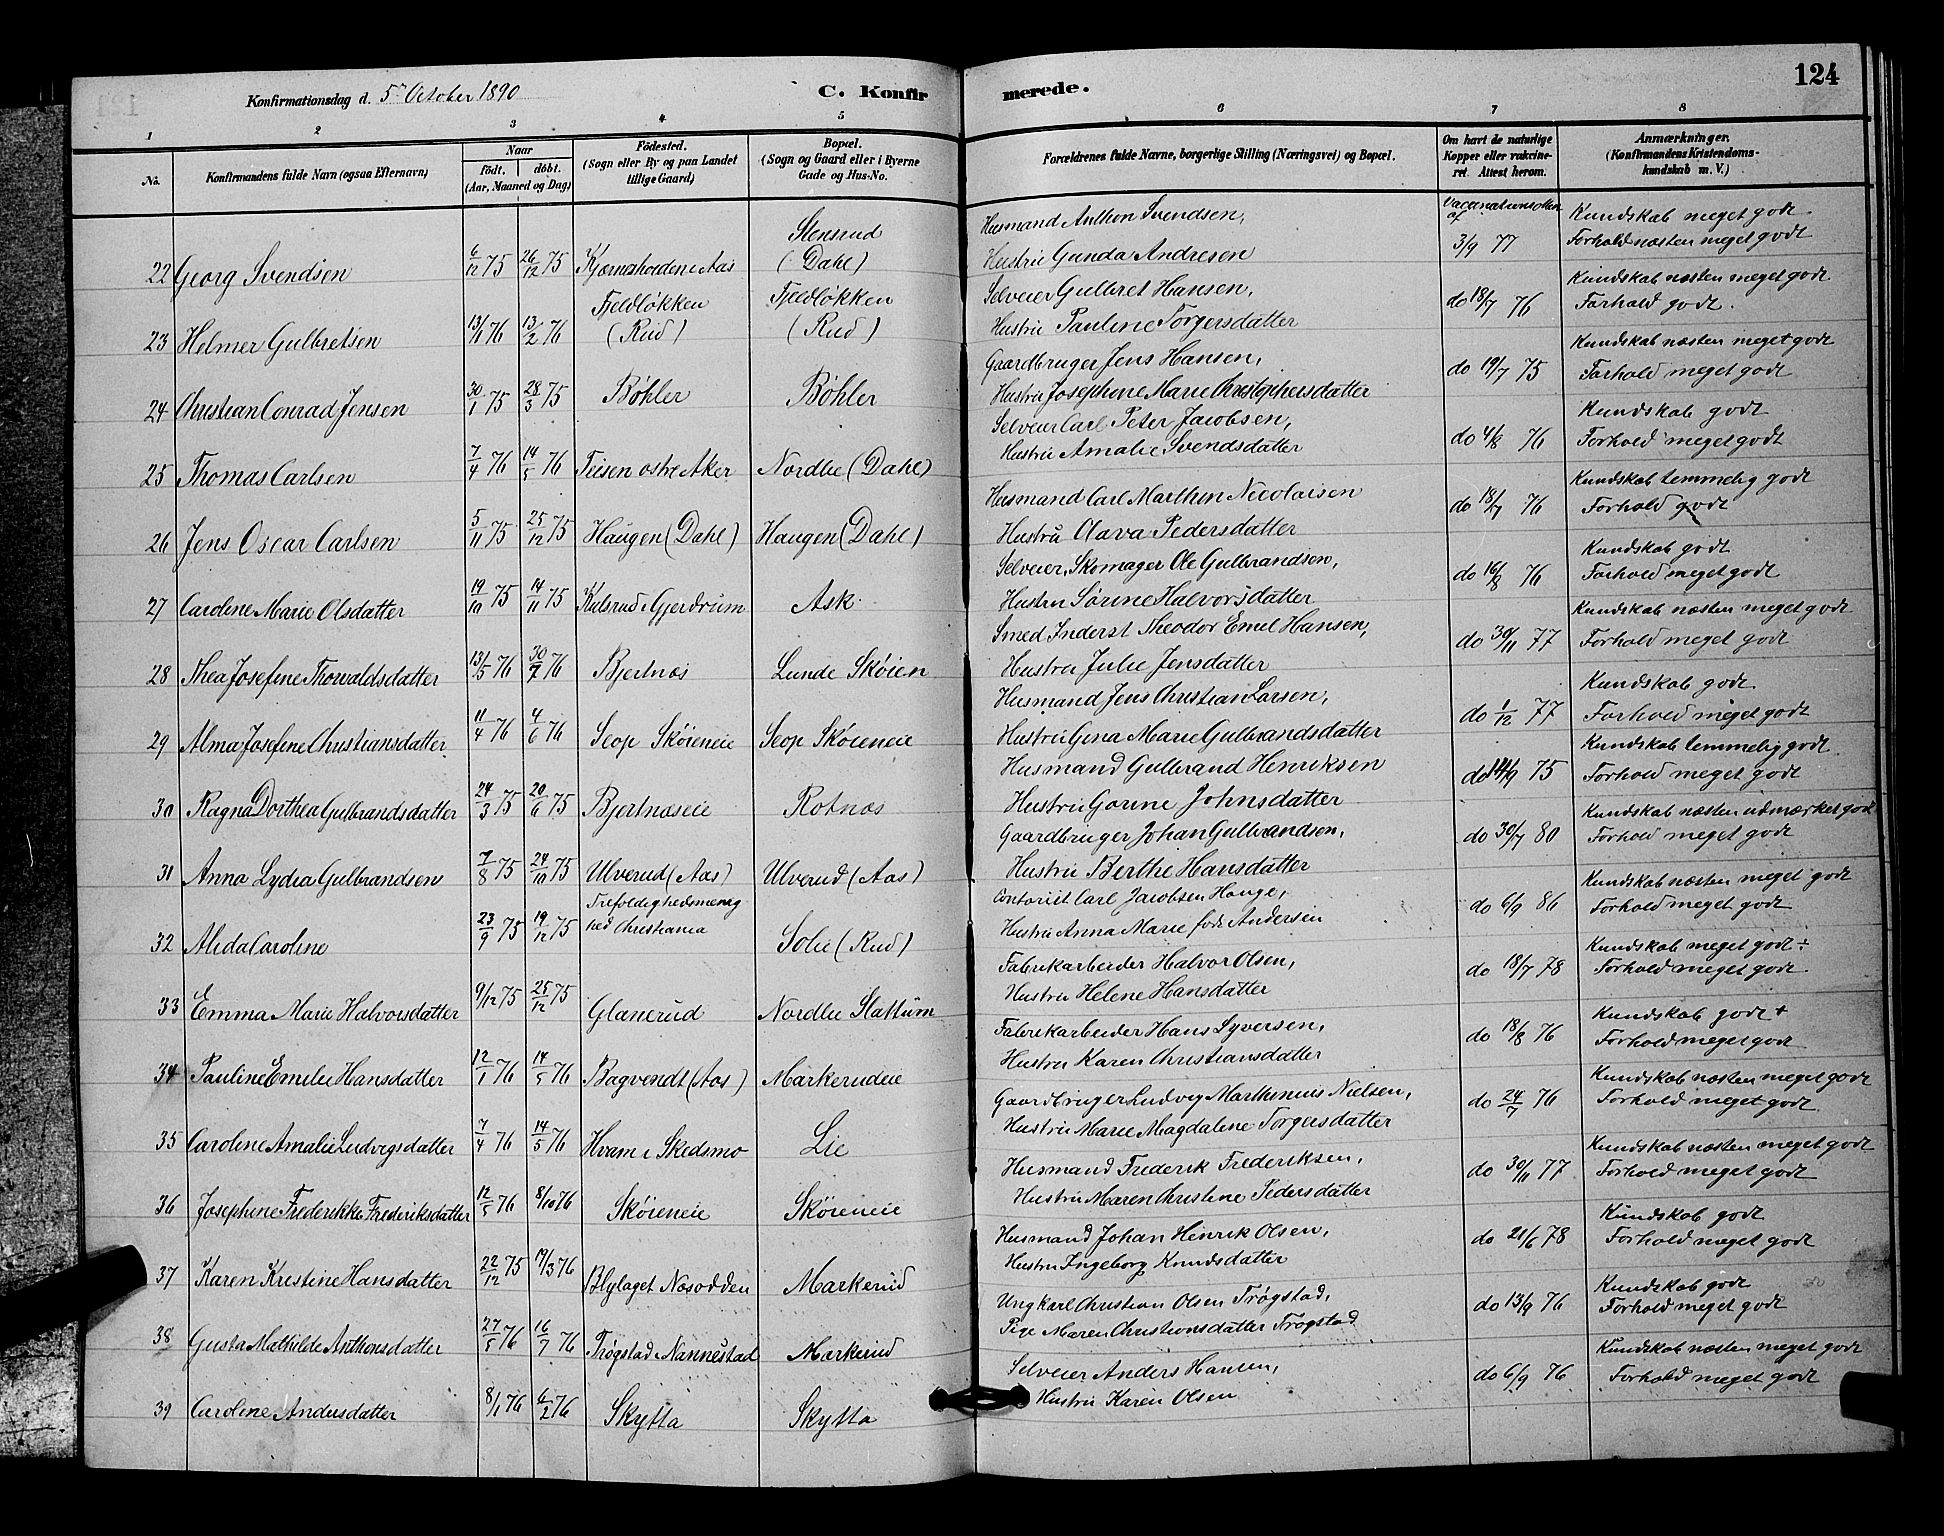 124
Konfirmationsdag d. 5te October 1890
C. Konfirmerede.
1 2 3 4 5 6 7 8
No.
Konfirmandens fulde Navn (ogsaa Efternavn)
Naar
födt. döbt.
(Aar, Maaned og Dag)
Födested.
(Sogn eller By og paa Landet
tillige Gaard.)
Bopæl.
(Sogn og Gaard eller i Byerne
Gade og Hus-No.
Forældrenes fulde Navne, borgerlige Stilling (Næringsvei) og Bopæl.
Om havt de naturlige
Kopper eller vakcine-
ret. Attest herom.
Anmærkninger.
(Konfirmandens Kristendoms-
kundskab m. V.)
22 Georg Svendsen 6/12 75 26/12 75 Stensrud (Dahl)
Husmand Anthon Svendsen,
Hustru Gunda Andresen
3/9 77
Kundskab meget godt
Forhold næsten meget godt
23 Helmer Gulbretsen 13/1 76 13/2 76 Fjeldløkken (Rud) Fjeldløkken (Rud)
Selveier Gulbret Hansen,
Hustru Pauline Torgersdatter
do 18/7 76
Kundskab næsten meget godt
Forhold godt.
24 Christian Conrad Jensen 30/1 75 28/3 75 Bøhler Bøhler
Gaardbruger Jens Hansen,
Hustru Josephine Marie Christophersdatter
do 19/7 75
Kundskab næsten meget godt
Forhold meget godt
25 Thomas Carlsen 7/4 76 14/5 76 Teisen østre Aker Nordlie (Dahl)
Selveier Carl Peter Jacobsen,
Hustru Amalie Svendsdatter
do 4/8 76
Kundskab godt
Forhold meget godt
26 Jens Oscar Carlsen 5/11 75 25/12 75 Haugen (Dahl) Haugen (Dahl)
Husmand Carl Marthin Nicolaisen
Hustru Olava Pedersdatter
do 18/7 76
Kundskab temmelig godt
Forhold godt
27 Caroline Marie Olsdatter 19/10 75 14/11 75 Kulsrud i Gjerdrum Ask
Selveier, Skomager Ole Gulbrandsen,
Hustru Sørine Halvorsdatter
do 16/8 76
Kundskab godt
Forhold meget godt
28 Thea Josefine Thorvaldsdatter 13/5 76 30/7 76 Bjertnæs Lunde Skøien
Smed Inderst Theodor Emil Hansen,
Hustru Julie Jensdatter
do 30/11 77
Kundskab næsten meget godt
Forhold meget godt
29 Alma Josefine Christiansdatter 11/4 76 4/6 76 Seop Skøieneie Seop Skøieneie
Husmand Jens Christian Larsen,
Hustru Gina Marie Gulbrandsdatter
do 1/12 77
Kundskab godt
Forhold meget godt
30 Ragna Dorthea Gulbrandsdatter 24/3 75 20/6 75 Bjertnæseie Rotnæs
Husmand Gulbrand Henriksen
Hustru Gorine Johnsdatter
do 14/9 75
Kundskab temmelig godt
Forhold meget godt
31 Anna Lydia Gulbrandsen 7/8 75 24/10 75 Ulverud (Aas) Ulverud (Aas)
Gaardbruger Johan Gulbrandsen,
Hustru Berthe Hansdatter
do 30/7 80
Kundskab næsten udmærket godt
Forhold meget godt
32 Alida Caroline 23/9 75 19/12 75 Trefoldighedsmenighed Christiania Solie (Rud)
Contorist Carl Jacobsen Hauge,
Hustru Anna Marie født Andersen
do 6/9 86
Kundskab næsten meget godt
Forhold meget godt
33 Emma Marie Halvorsdatter 9/12 75 25/12 75 Glanerud Nordlie Slattum
Fabrikarbeider Halvor Olsen,
Hustru Helene Hansdatter
do 18/7 78
Kundskab meget godt ÷
Forhold meget godt
34 Pauline Emilie Hansdatter 12/1 76 14/5 76 Bagvendt (Aas) Markerudeie
Fabrikarbeider Hans Syversen,
Hustru Karen Christiansdatter
do 18/8 76
Kundskab godt +
Forhold meget godt
35 Caroline Amalie Ludvigsdatter 7/4 76 14/5 76 Hvam i Skedsmo Lie
Gaardbruger Ludvig Marthinius Nielsen,
Hustru Marie Magdalene Torgersdatter
do 24/7 76
Kundskab næsten meget godt
Forhold meget godt
36 Josephine Frederikke Frederiksdatter 12/5 76 8/10 76 Skøieneie Skøieneie
Husmand Frederik Frederiksen,
Hustru Maren Christine Pedersdatter
do 30/11 77
Kundskab næsten meget godt
Forhold meget godt
37 Karen Kristine Hansdatter 22/12 75 19/3 76 Blylaget Næsodden Markerud
Husmand Johan Hinrik Olsen,
Hustru Ingeborg Knudsdatter
do 21/6 78
Kundskab godt
Forhold meget godt
38 Gusta Mathilde Anthonsdatter 27/5 76 16/7 76 Trøgstad i Nannestad Markerud
Ungkarl Christian Olsen Trøgstad,
Pige Maren Christiansdatter Trøgstad
do 13/9 76
Kundskab godt
Forhold meget godt
39 Caroline Andersdatter 8/1 76 6/2 76 Skytta Skytta
Selveier Anders Hansen,
Hustru Karen Olsen
do 6/9 76
Kundskab næsten meget godt
Forhold meget godt